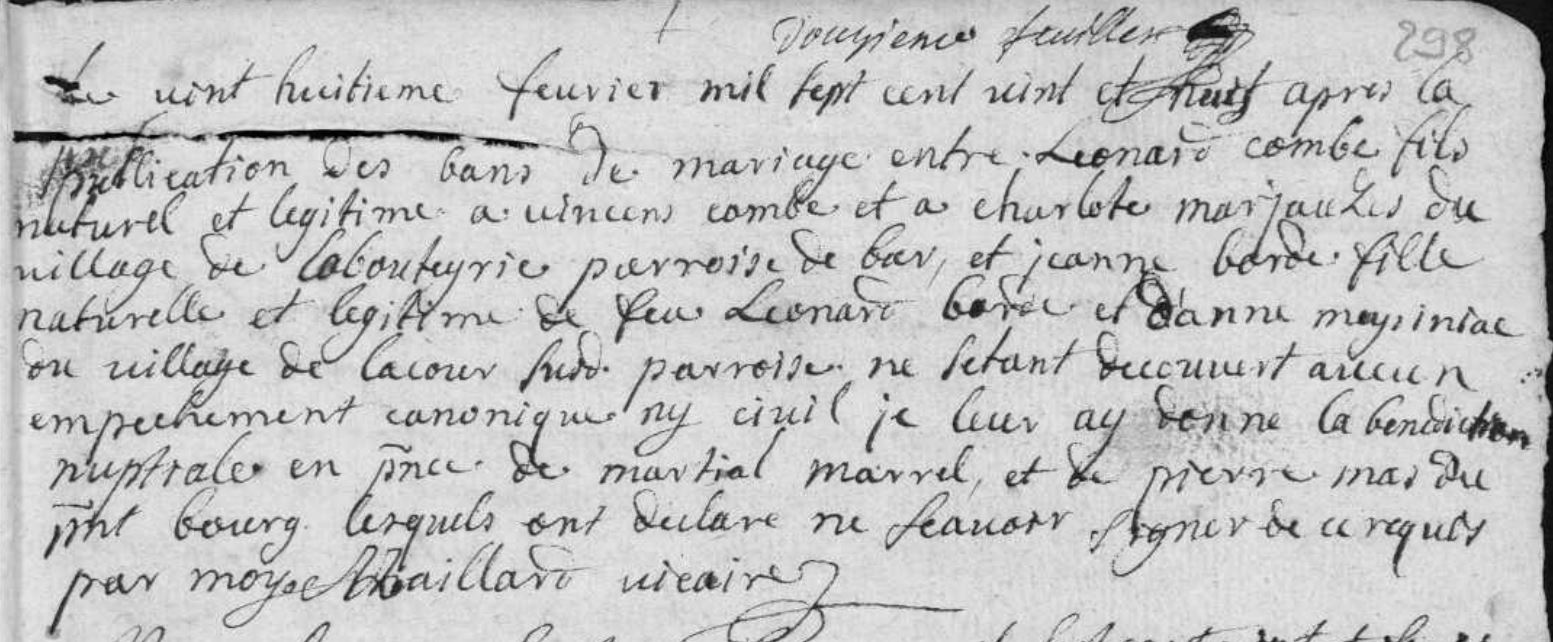 Douzieme feuillet
298
Le vint huitieme fevrier mil sept cent vint et huit apres la
publication des bans de mariage entre Leonard combe fils
naturel et legitime a vincens combe et a charlote marjauzes du
village de labouteyrie parroise de bar, et jeanne borde fille
naturelle et legitime de feu Leonard borde et d'anne meyiniac
du village de lacour susd. parroise ne setant decouvert aucun
empechement canonique ny civil je leur ay donne la benediction
nuptiale en pnce de martial marrel, et de pierre mas du
pnt bourg lesquels ont declare ne scavoir signer de ce requis
par moy vicaire